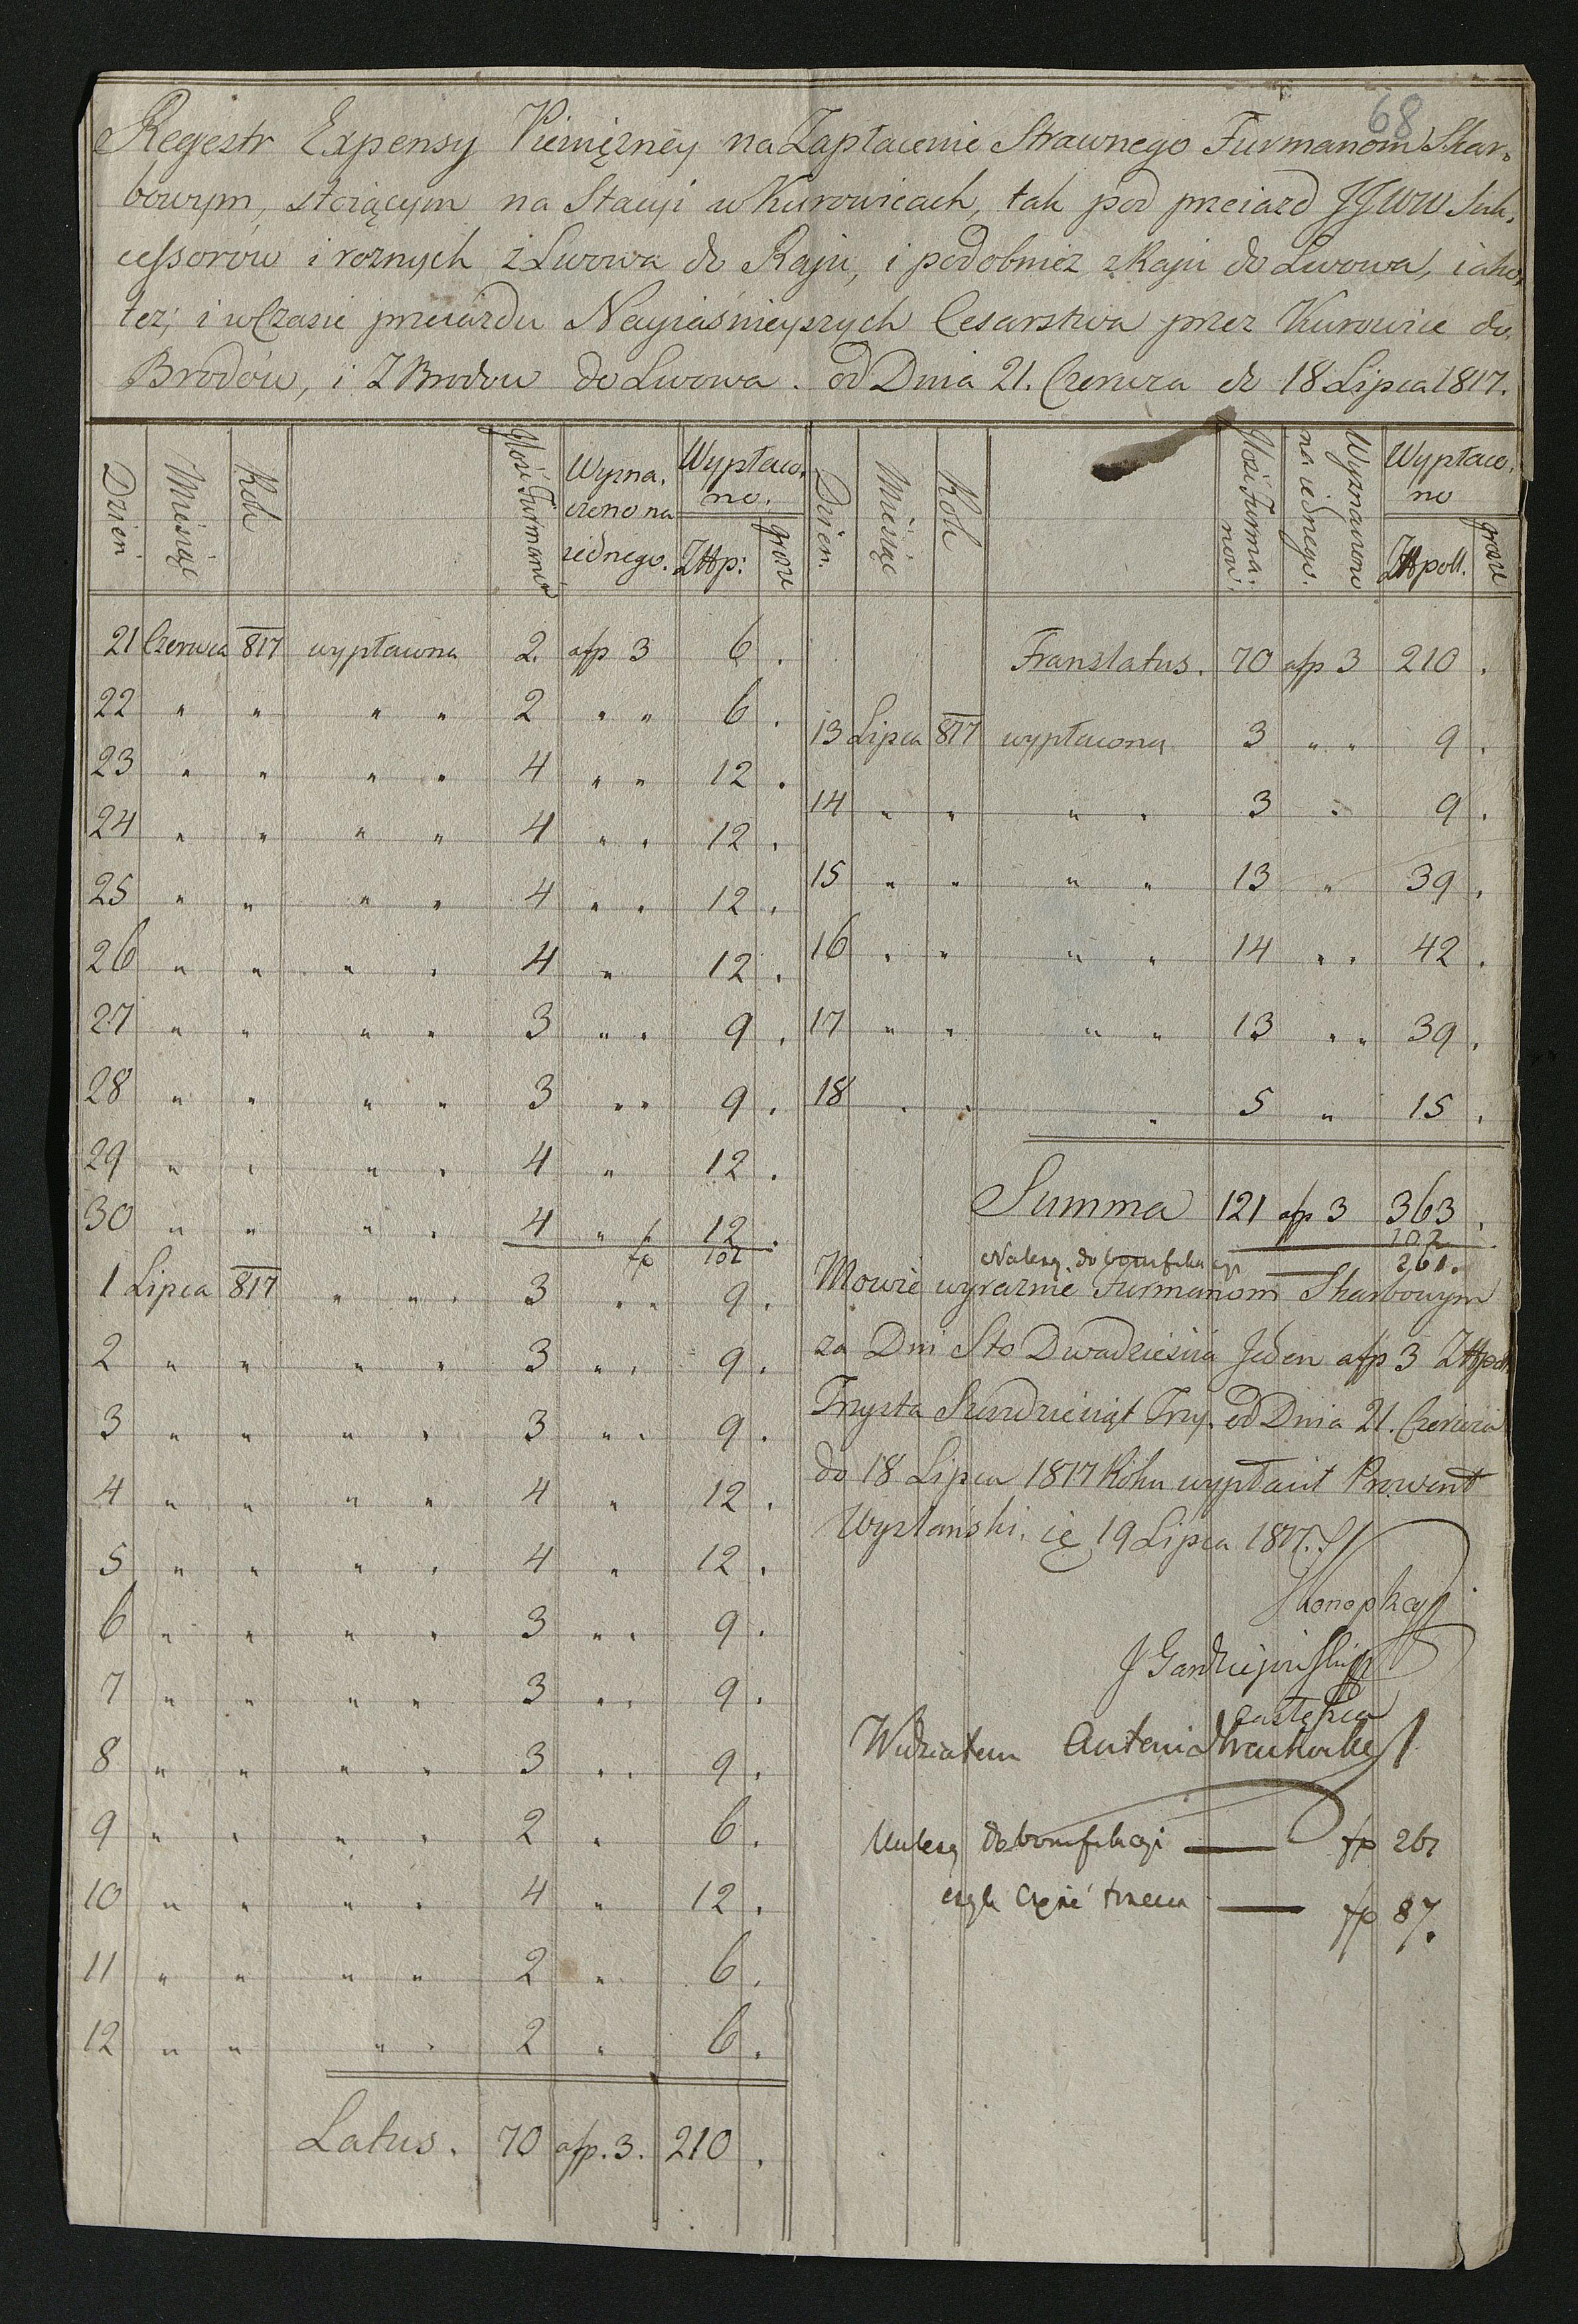 68
Regestr Expensy Pieniężney na Zapłacenie Strawnego Furmanom Skar=
bowym, stoiącym na Stacyi w Kurowicach, tak pod przeiazd JJWW Suk=
cessorów i roznych z Lwowa do Raju, i podobnież z Raju do Lwowa, iako
też, i w Czasie przeiazdu Nayiaśnieyszych Cesarstwa przez Kurowice do
Brodów, i Z Brodów do Lwowa. od Dnia 21. Czerwca do 18 Lipca 1817.
Dzień Miesiąc Rok Ilość Furmanów Wyzna=czono na iednego. Wypłaco=no. Złłp: grosze
21 Czerwca 817 wypłacona 2. afp 3 6 .
22 " " " " 2 " " 6 .
23 " " " " 4 " " 12 .
24 " " " " 4 " " 12 .
25 " " " " 4 " " 12 .
26 " " " " 4 " 12 .
27 " " " " 3 " " 9 .
28 " " " " 3 " " 9 .
29 " " " " 4 " 12 .
30 " " " " 4 " " 12 .
fp 102
1 Lipca 817 " " " 3 " " 9 .
2 " " " " 3 " " 9 .
3 " " " " 3 " " 9 .
4 " " " " 4 " 12 .
5 " " " " 4 " 12 .
6 " " " " 3 " " 9 .
7 " " " " 3 " " 9 .
8 " " " " 3 " " 9 .
9 " " " " 2 " 6 .
10 " " " " 4 " 12 .
11 " " " " 2 " 6 .
12 " " " " 2 " 6 .
Latus. 70 afp. 3. 210 .
Dzień. Miesiąc Rok Ilość Furma=nów. Wyznaczono na iednego. Wypłaco=no Złłpoll. grosze
Translatus. 70 afp 3 210 .
13 Lipca 817 wypłacony 3 " " 9 .
14 " " " " 3 " 9 .
15 " " " " 13 " 39 .
16 " " " " 14 " " 42 .
17 " " " " 13 " " 39 .
18 " " " 5 " 15 .
Summa 121 afp 3 363 .
102
Należy do bonifikacyi — 261.
Mowie wyraznie Furmanom Skarbowym
za Dni Sto Dwadzieścia Jeden afp 3 Złłpoll
Trzysta Sześdziesiąt Trzy. od Dnia 21. Czerwca
do 18 Lipca 1817 Roku wypłacił Prowent
Wyzlański. 19 Lipca 1817.
Konopka
zastępca
Widziałem Antoni
Należy do bonifikacyi — fp 261
czyli Część trzecia — fp 87.